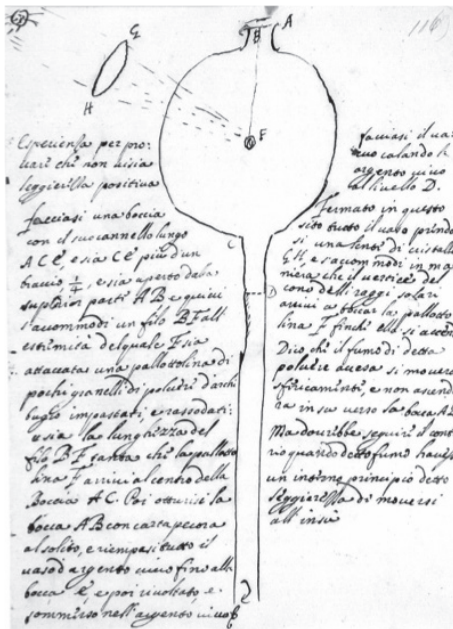 116
G
H
A
B
F
C
D
Esperienza per pro-
vare che non vi sia
leggierezza positiva
Facciasi una boccia
con il suo cannello lungo
A C E, e sia C E più d'un
braccio 1/4, e sia aperto dalla
superior parte A B e quivi
s'accommodi un filo B F all
estremità del quale F sia
attaccata una pallottolina di
pochi granelli di polvere d'archi
bugio impastati, e rassodati:
e sia la lunghezza del
filo B F tanta che la pallotto
lina F arrivi al centro della
Boccia A C. Poi otturisi la
bocca A B con carta pecora
al solito, e riempasi tutto il
vaso d'argento vivo fino alla
bocca E, e poi rivoltato, e
sommerso nell'argento vivo
facciasi il va-
cuo calando l'
argento vivo
al livello D.
Fermato in questo
sito tutto il vaso prenda
si una lente di cristallo
G H, e s'accommodi in ma
niera che il vertice del
cono delli raggi solari
arrivi a toccar la pallotto
lina F finché ella si accen
Dico che il fumo di detta
polvere accesa si movera
sfericamente, e non ascende
ra in su verso la bocca A B
Ma dovrebbe seguire il contra
rio quando detto fumo havesse
un interno principio detto
leggierezza di moversi
all'insù